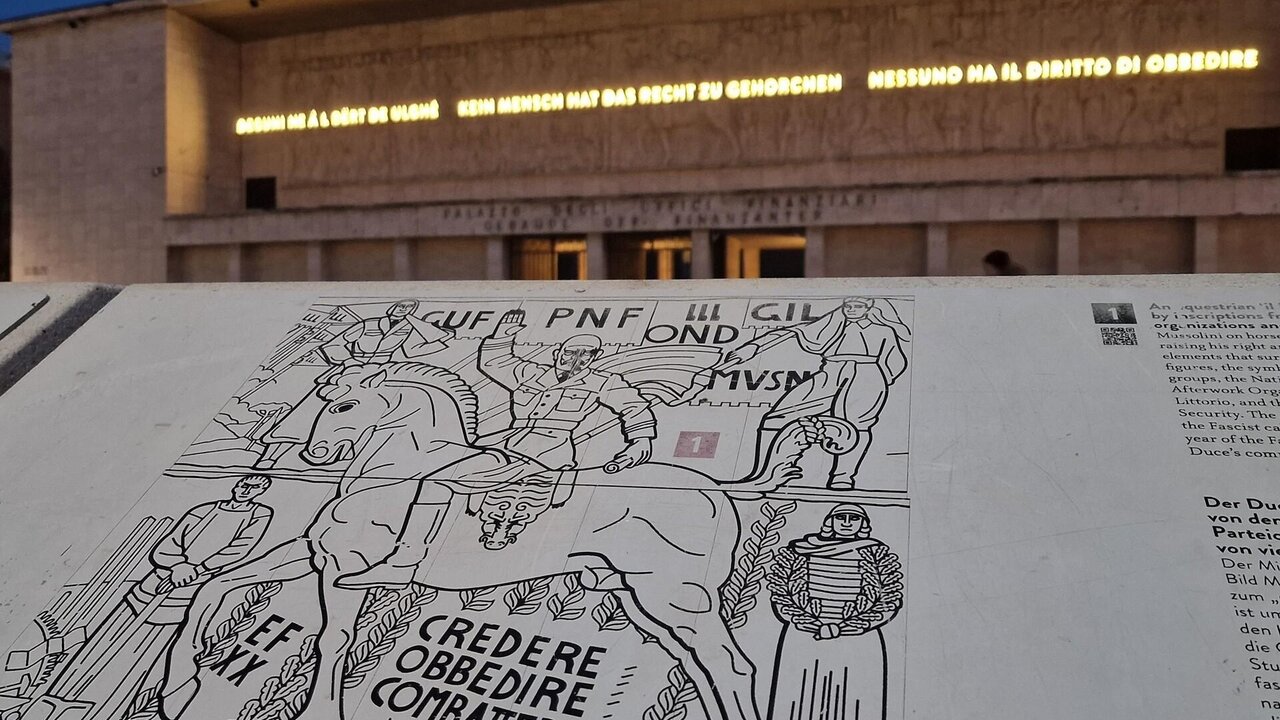 DEGUNI NE À L DËRT DE ULGHÈ KEIN MENSCH HAT DAS RECHT ZU GEHORCHEN NESSUNO HA IL DIRITTO DI OBBEDIRE
PALAZZO DEGLI UFFICI FINANZIARI
GEBÄUDE DER FINANZÄMTER
GUF PNF III GIL
OND
MVSN
1
EF
XX
CREDERE
OBBEDIRE
COMBATTE
1
An equestrian "il
by inscriptions f
organizations an
Mussolini on horse
raising his right a
elements that sur
figures, the symb
groups, the Nat
Afterwork Org
Littorio, and t
Security. The
the Fascist ca
year of the F
Duce's com
Der Du
von der
Parteio
von vie
Der Mi
Bild M
zum „
ist um
den
die
Stu
fas
na